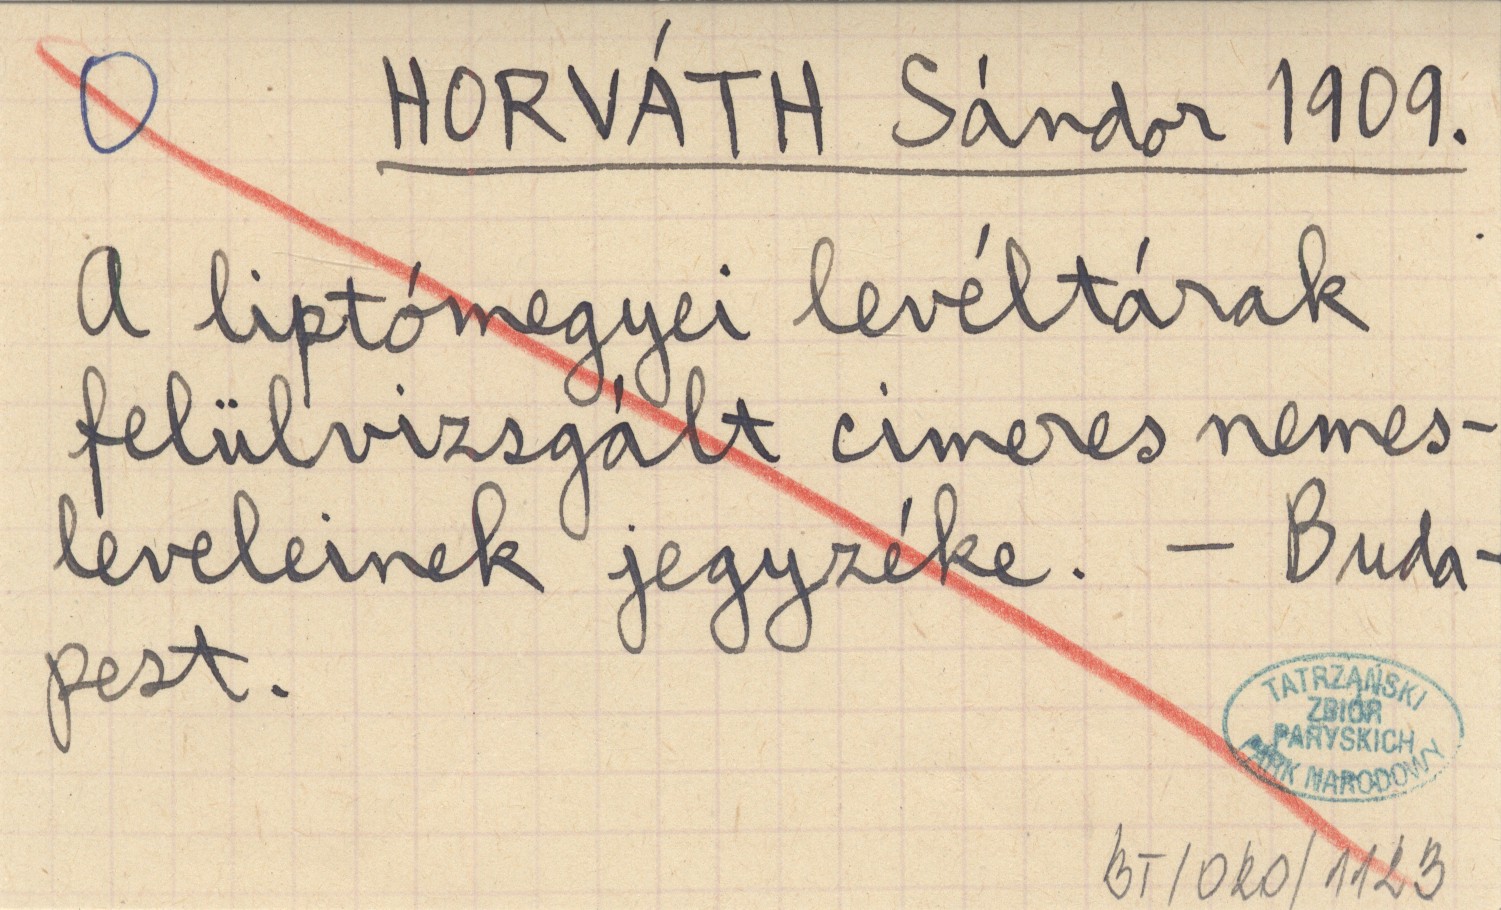 O HORVÁTH Sándor 1909.
A liptómegyei levéltárak
felülvizsgált cimeres nemes-
leveleinek jegyzéke. — Buda-
pest.
TATRZAŃSKI
ZBIÓR
PARYSKICH
PARK NARODOWY
BT/OBO/1123